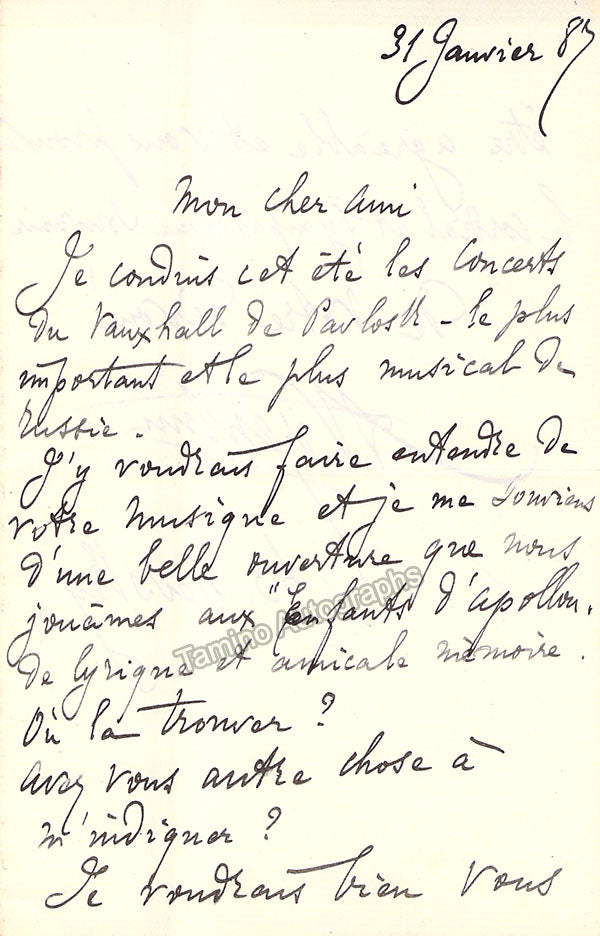 31 Janvier 87
Mon cher Ami
Je conduis cet été les Concerts
du Vauxhall de Pavlosk - le plus
important et le plus musical de
Russie.
J'y voudrais faire entendre de
votre musique et je me souviens
d'une belle ouverture que nous
jouâmes aux "Enfants d'apollon.
de lyrique et amicale mémoire.
Où la trouver ?
avez vous autre chose à
m'indiquer ?
Je voudrais bien vous
Tamino Autographs